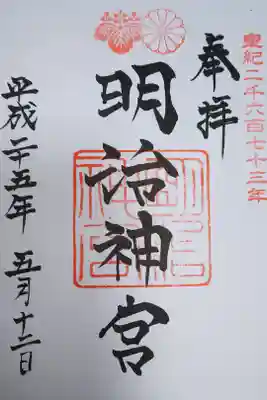 皇紀二千六百七十三年
奉拝
明治神宮
平成二十五年 五月十二日
明治神宮